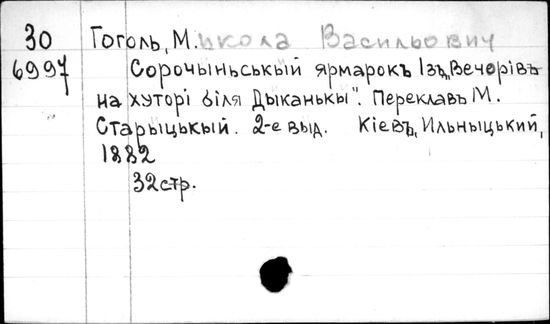 30 Гоголь, М.икола Васильович
6997 Сорочыньськый ярмарокъ Iзъ„Вечорiвъ
на хуторi бiля Дыканькы". Переклавъ М.
Старыцькый. 2-е выд. Кiевъ, Ильныцький,
1882
32стр.